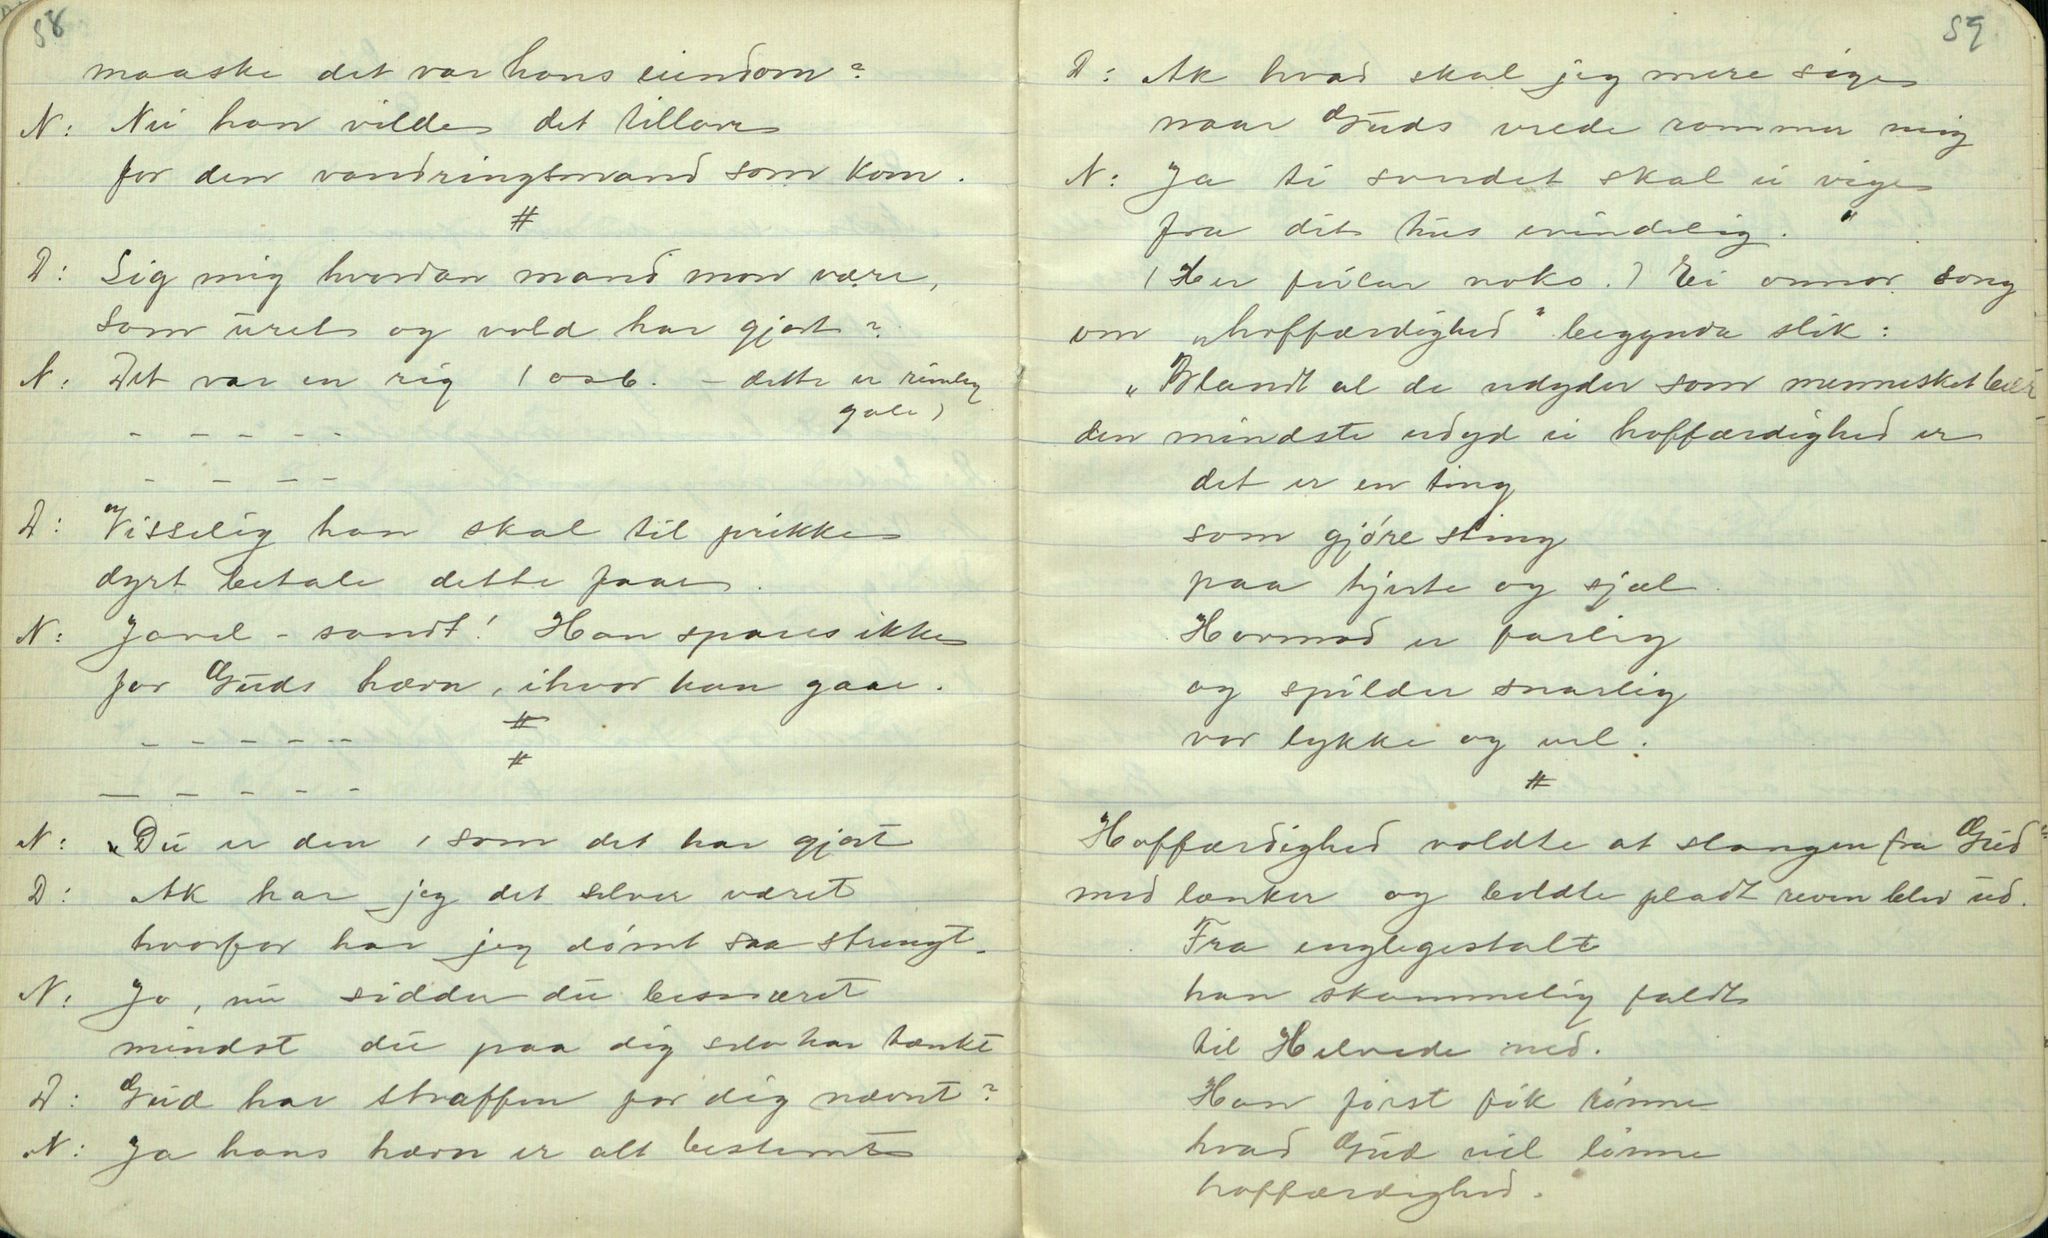 58
maaske det var hans eiendom?
N: Nei han vilde det tillave
for den vandringsmand som kom.
#
D: Sig mig hvordan mand mon være,
som uret og vold har gjort?
N: Det var en rig (osb. - dette er rimeleg
gale)
- - - - -
- - - -
D: Visselig han skal til prikke
dyrt betale dette faar.
N: Javel - sandt! Han spares ikke
for Guds hævn, ihvor han gaar.
#
- - - - -
#
- - - - -
N: "Du er den, som det har gjort
D: Ak har jeg det selver været
hvorfor har jeg dømt saa strengt.
N: Jo, nu sidder du besnæret
mindst du paa dig selv har tænkt
D: Gud har straffen for dig nævnt?
N: Ja hans hævn er alt bestemt
59
D: Ak hvad skal jeg mere sige
naar Guds vrede rammer mig
N: Ja ti sverdet skal ei vige
fra dit hus evindelig."
(Her feilar noko.) Ei onnor song
om "hoffærdighed" begynda slik:
"Blandt al de udyder som mennesket beær
den mindste udyd ei hoffærdighed er
det er en ting
som gjøre sting
paa hjerte og sjæl.
Hovmod er farlig
og spilder snarlig
vor lykke og vel.
#
Hoffærdighed voldte at slangen fra Gud
med lænker og boldte pladt reven blev ud.
Fra englegestalt
han skammelig faldt
til Helvede ned.
Han først fik rønne
hvad Gud vil lønne
hoffærdighed.